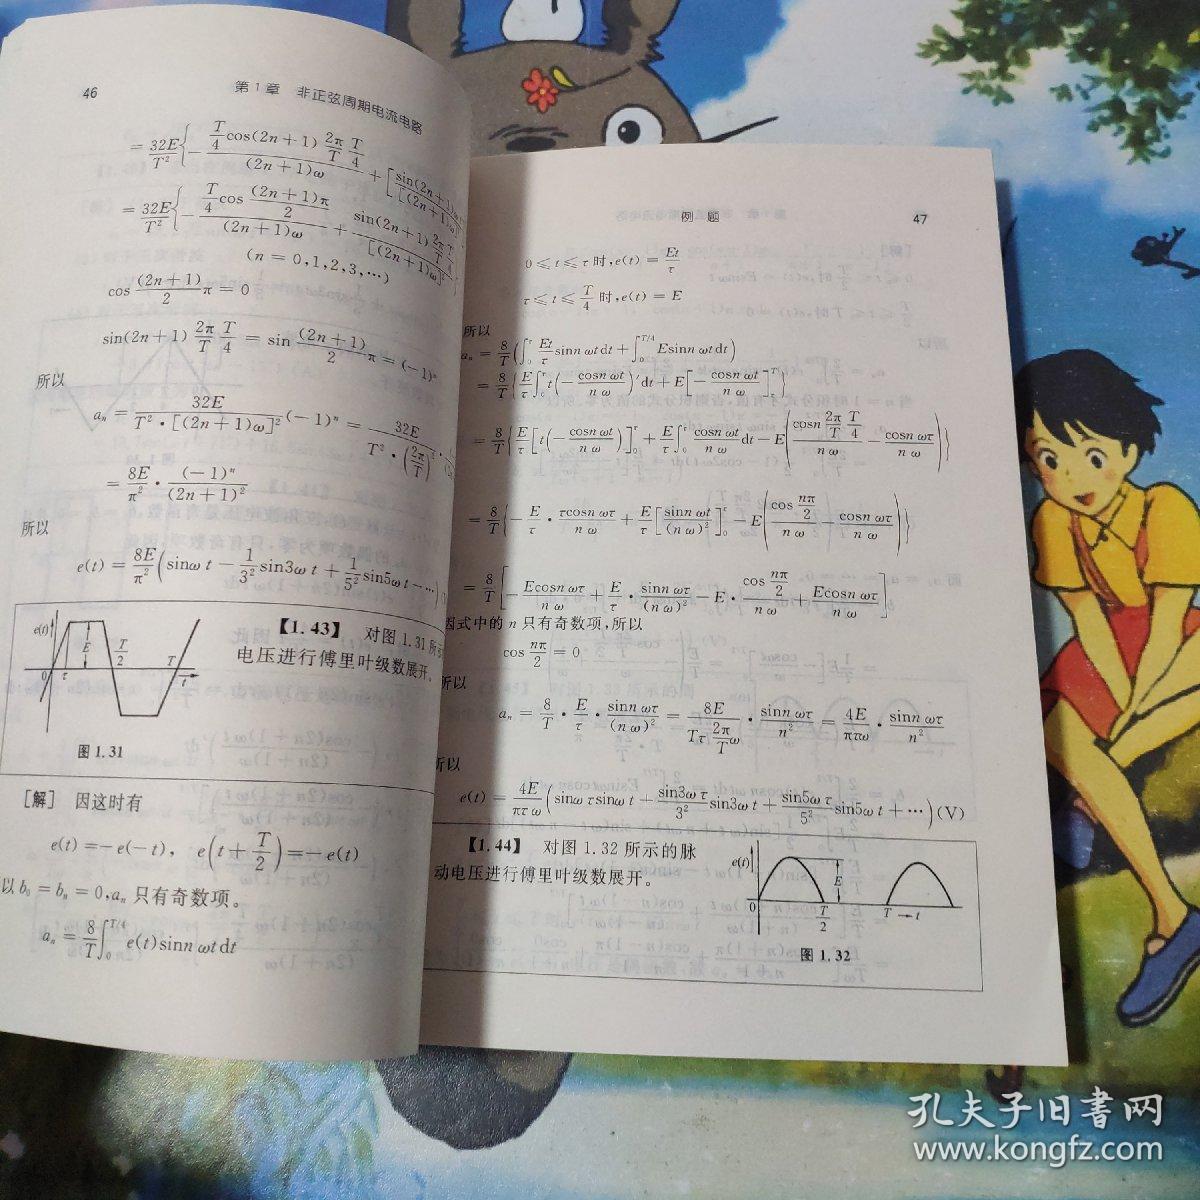 46 第1章 非正弦周期电流电路
= 32E/T² { − (T/4 cos(2n+1) 2π/T T/4)/((2n+1)ω) + [
= 32E/T² { − (T/4 cos (2n+1)π/2)/((2n+1)ω) + sin(2n+1) 2π/T
(n = 0,1,2,3,…)
cos (2n+1)/2 π = 0
sin(2n+1) 2π/T T/4 = sin (2n+1)/2 π = (−1)ⁿ
所以
aₙ = 32E/(T²·[(2n+1)ω]²) (−1)ⁿ = 32E/(T²·(2π/T)²
= 8E/π² · (−1)ⁿ/(2n+1)²
所以
e(t) = 8E/π² (sinω t − 1/3² sin3ω t + 1/5² sin5ω t − …)
【1.43】 对图 1.31 所示
电压进行傅里叶级数展开。
e(t) E T/2 T 0 τ t
图 1.31
[解] 因这时有
e(t) = −e(−t), e(t + T/2) = −e(t)
以 b₀ = bₙ = 0, aₙ 只有奇数项。
aₙ = 8/T ∫₀^{T/4} e(t)sinn ωt dt
例 题 47
0 ⩽ t ⩽ τ 时, e(t) = Et/τ
τ ⩽ t ⩽ T/4 时, e(t) = E
所以
aₙ = 8/T (∫₀^τ Et/τ sinn ωt dt + ∫₀^{T/4} Esinn ωt dt)
= 8/T {E/τ ∫₀^τ t(− cosn ωt/n ω)′dt + E[− cosn ωt/n ω]^T}
= 8/T {E/τ [t(− cosn ωt/n ω)]₀^τ + E/τ ∫₀^τ cosn ωt/n ω dt − E(cosn 2π/T T/4 /n ω − cosn ωτ/n ω)}
= 8/T {− E/τ · τcosn ωτ/n ω + E/τ [sinn ωt/(n ω)²]₀^τ − E(cos nπ/2 /n ω − cosn ωτ/n ω)}
= 8/T [− Ecosn ωτ/n ω + E/τ · sinn ωτ/(n ω)² − E · cos nπ/2 /n ω + Ecosn ωτ/n ω]
因式中的 n 只有奇数项, 所以
cos nπ/2 = 0
所以
aₙ = 8/T · E/τ · sinn ωτ/(n ω)² = 8E/(Tτ 2π/T ω) · sinn ωτ/n² = 4E/πτω · sinn ωτ/n²
所以
e(t) = 4E/πτ ω (sinω τ sinω t + sin3ω τ/3² sin3ω t + sin5ω τ/5² sin5ω t + …)(V)
【1.44】 对图 1.32 所示的脉
动电压进行傅里叶级数展开。
e(t) E 0 T/2 T → t
图 1.32
孔夫子旧书网
www.kongfz.com